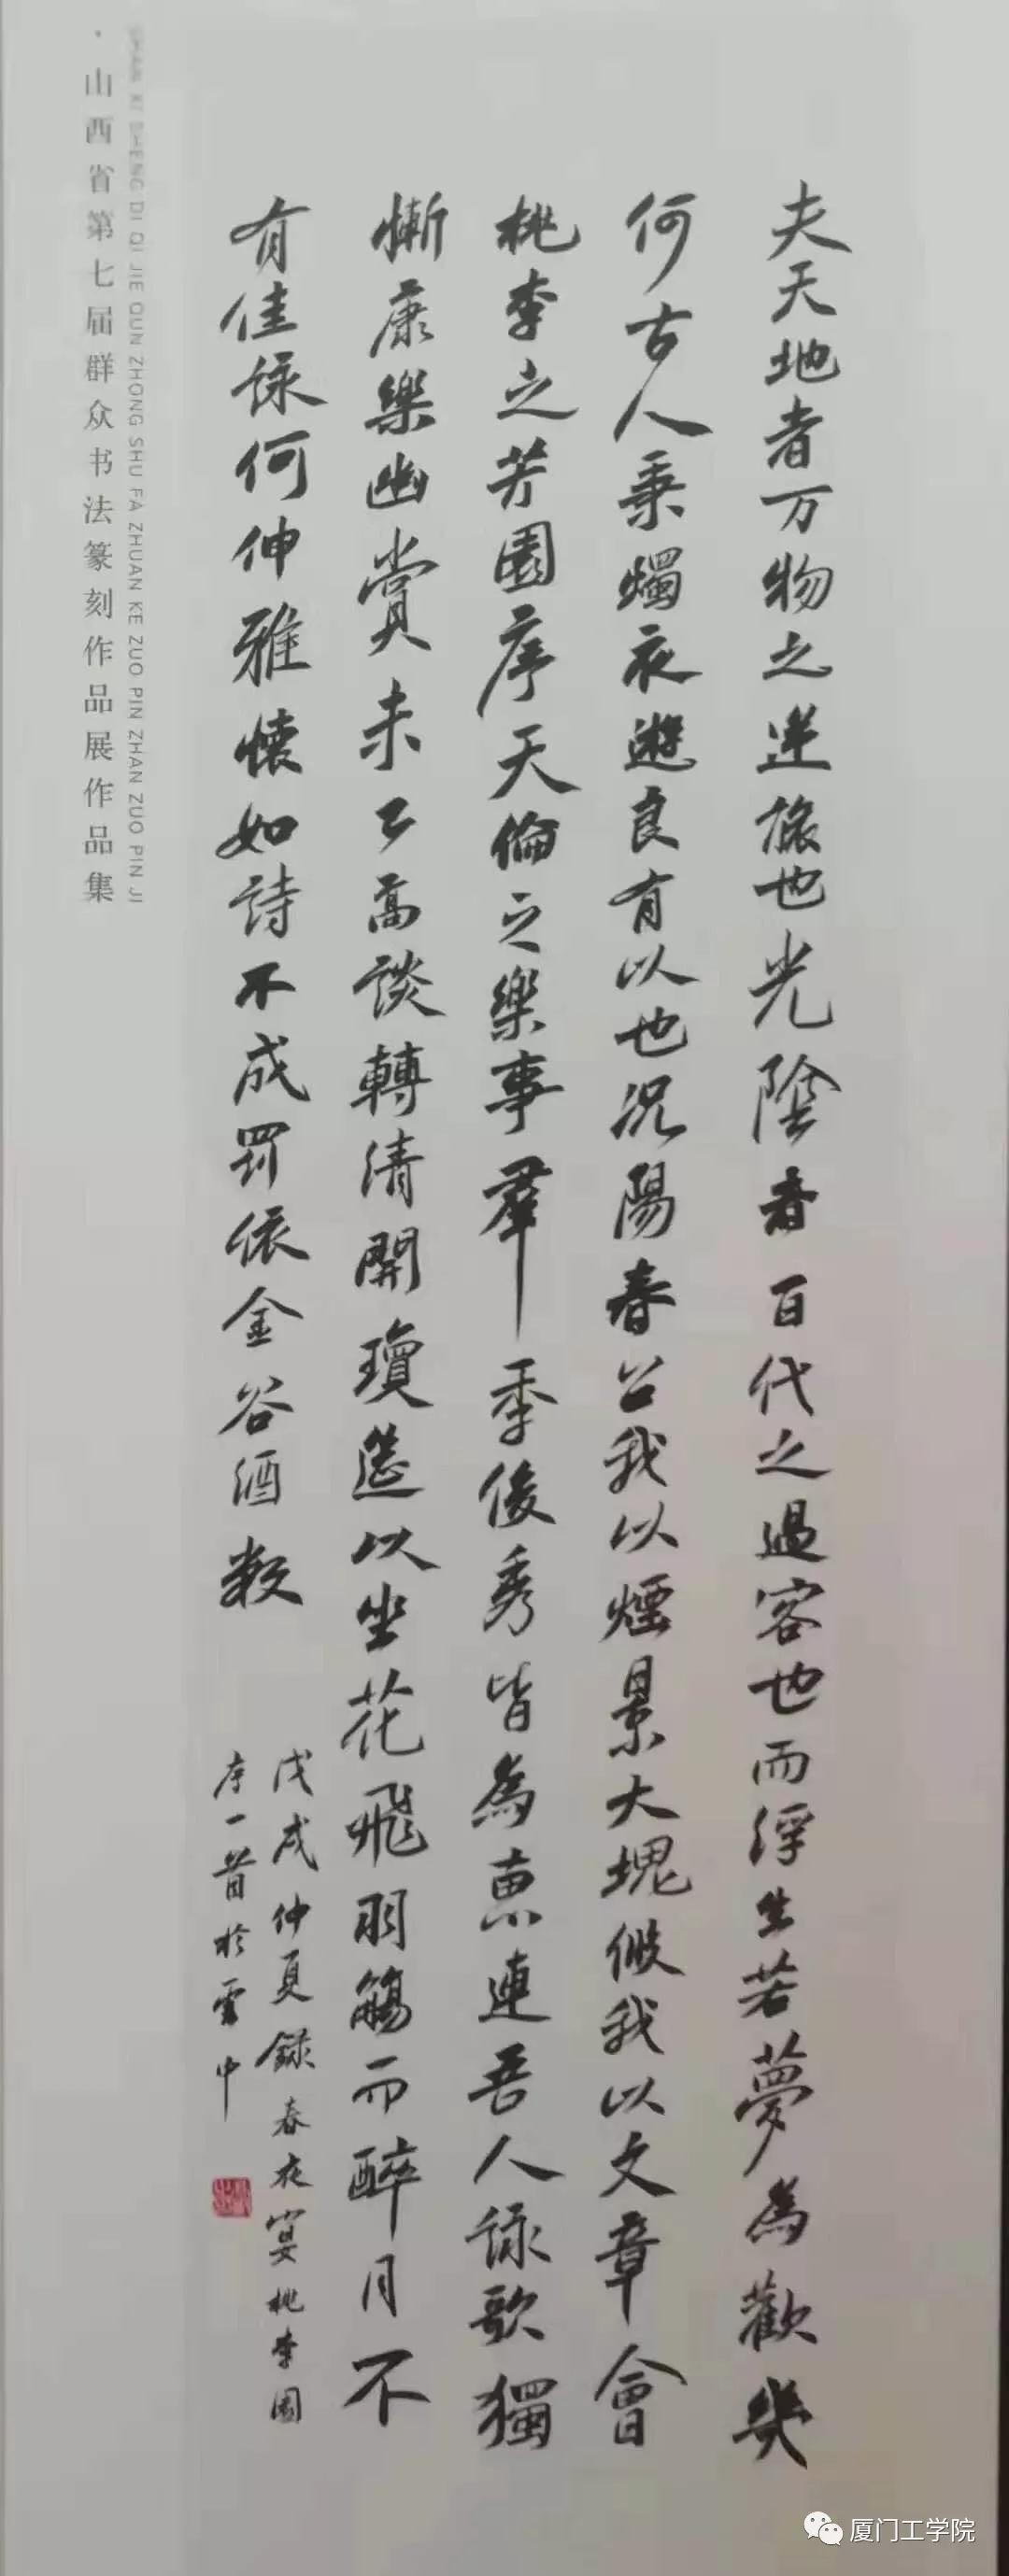 夫天地者万物之逆旅也光陰者百代之過客也而浮生若夢為歡幾
何古人秉燭夜遊良有以也況陽春召我以煙景大塊假我以文章會
桃李之芳園序天倫之樂事羣季俊秀皆為惠連吾人詠歌獨
慚康樂幽賞未已高談轉清開瓊筵以坐花飛羽觴而醉月不
有佳詠何伸雅懷如詩不成罰依金谷酒數
戊戌仲夏錄春夜宴桃李園
序一首於雲中
SHAN XI SHENG DI QI JIE QUN ZHONG SHU FA ZHUAN KE ZUO PIN ZHAN ZUO PIN JI
·山西省第七届群众书法篆刻作品展作品集
厦门工学院